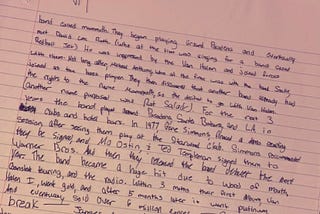 band called mammoth. They began playing around Pasadena and eventually
met David Lee Roth (who at the time was singing for a band called
Redball Jex) He was impressed by the Van Halen and joined forces
with them. Not long after, Michael Anthony, who at the time was with the band Snake,
joined as the bass player. They then discovered that another band already had
the rights to the name Mammoth, so the decided to go with Van Halen
(another name proposed was Rat Salade). For the next 3
years the band played around Pasadena, Santa Barbara and LA in
clubs and hotel bars. In 1977 Gene Simmons financed a demo recording
session after seeing them play at the Starwood Club. Simmons recommended
they be signed, and Mo Ostin, & Ted Templeman signed them to
Warner Bros. And then they released the band debut the next
year. The band became a huge hit due to word of mouth,
constant touring, and the radio. Within 3 moths their first album, Van
Halen I, went gold, and after 5 months later it went platinum
and eventually sold over 6 million
break